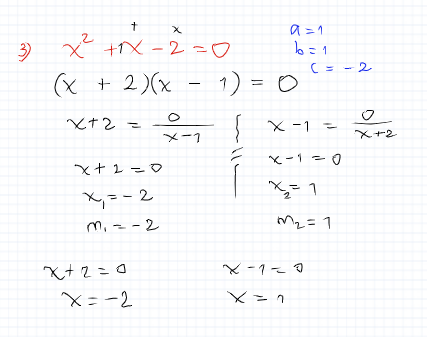 + x
3) x² + 1x - 2 = 0
a = 1
b = 1
c = -2
(x + 2)(x - 1) = 0
x+2 = 0/(x-1) { x-1 = 0/(x+2)
x+2 = 0 x-1 = 0
x₁ = -2 x₂ = 1
m₁ = -2 m₂ = 1
x+2 = 0 x-1 = 0
x = -2 x = 1